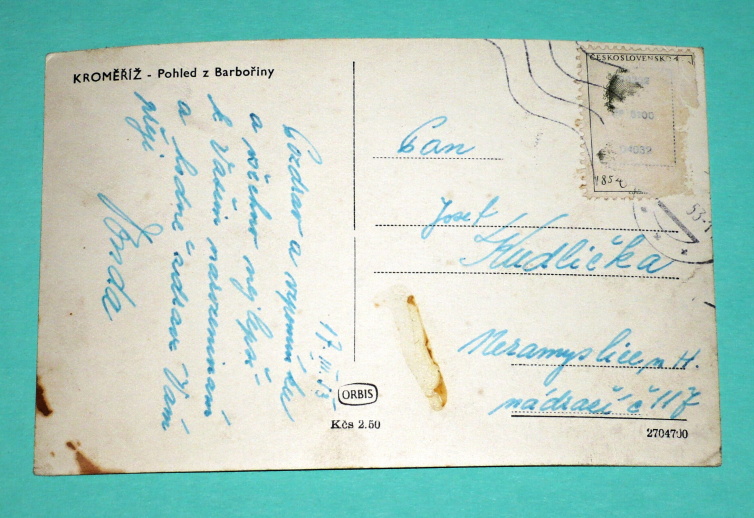 KROMĚŘÍŽ - Pohled z Barbořiny
17. III. 53
Pozdrav a
a všechno nejlepší
k Vašim narozeninám
a hodně zdraví Vám
přeji
Jenda
ČESKOSLOVENSKO
Pan
Josef
Kudlička
Nezamyslice n H.
nádraží č 117
53
ORBIS
Kčs 2.50
2704700